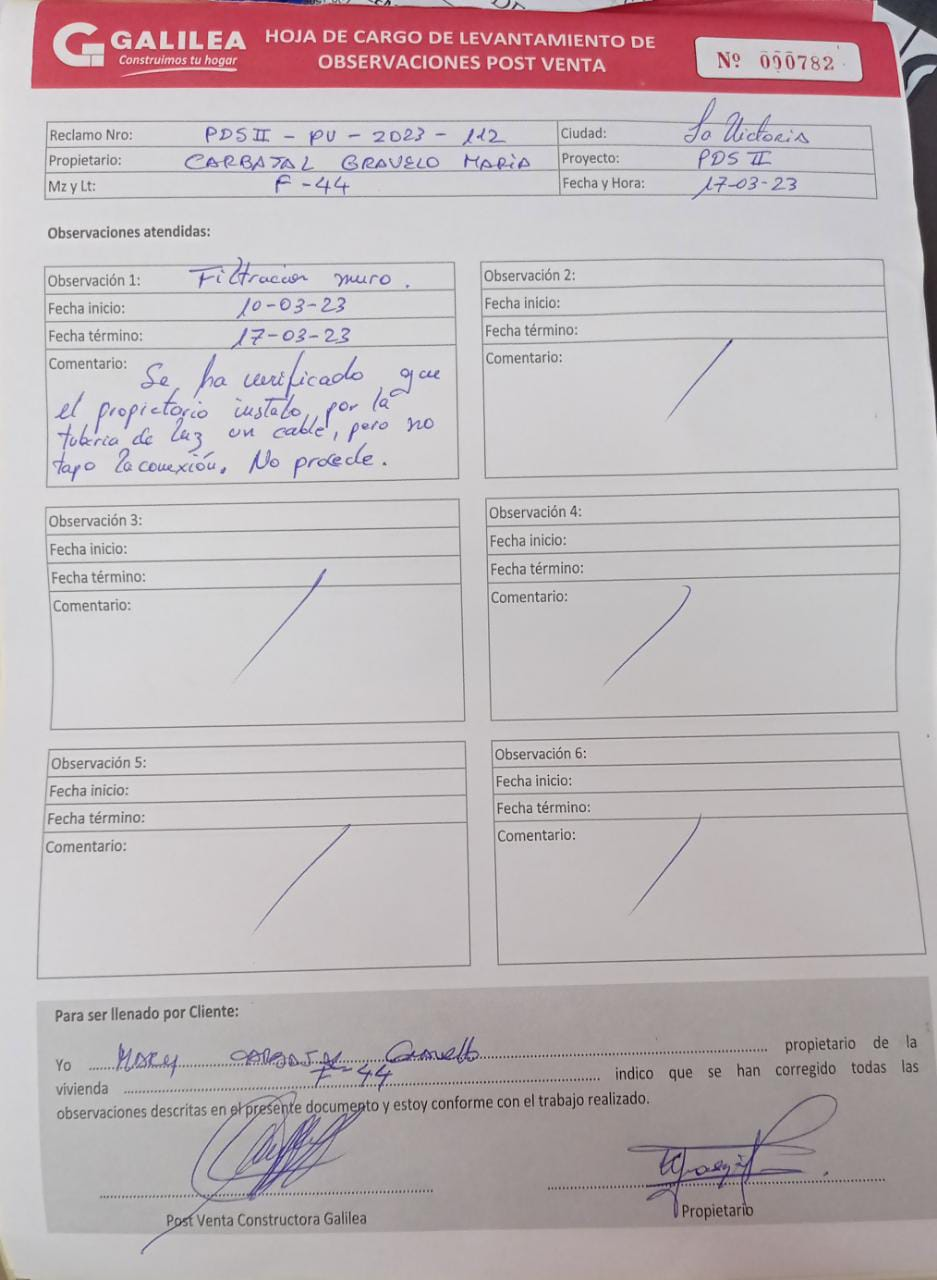 GALILEA
Construimos tu hogar
HOJA DE CARGO DE LEVANTAMIENTO DE
OBSERVACIONES POST VENTA
Nº 090782
Reclamo Nro: PDS II - PV - 2023 - 112
Ciudad: La Victoria
Propietario: CARBAJAL GRAVELO MARIA
Proyecto: PDS II
Mz y Lt: F - 44
Fecha y Hora: 17-03-23
Observaciones atendidas:
Observación 1: Filtracion muro.
Fecha inicio: 10-03-23
Fecha término: 17-03-23
Comentario: Se ha verificado que
el propietario instalo por la
tuberia de luz un cable, pero no
tapo la conexión. No procede.
Observación 2:
Fecha inicio:
Fecha término:
Comentario:
Observación 3:
Fecha inicio:
Fecha término:
Comentario:
Observación 4:
Fecha inicio:
Fecha término:
Comentario:
Observación 5:
Fecha inicio:
Fecha término:
Comentario:
Observación 6:
Fecha inicio:
Fecha término:
Comentario:
Para ser llenado por Cliente:
Yo MARY CARBAJAL propietario de la
vivienda F-44 indico que se han corregido todas las
observaciones descritas en el presente documento y estoy conforme con el trabajo realizado.
Post Venta Constructora Galilea
Propietario